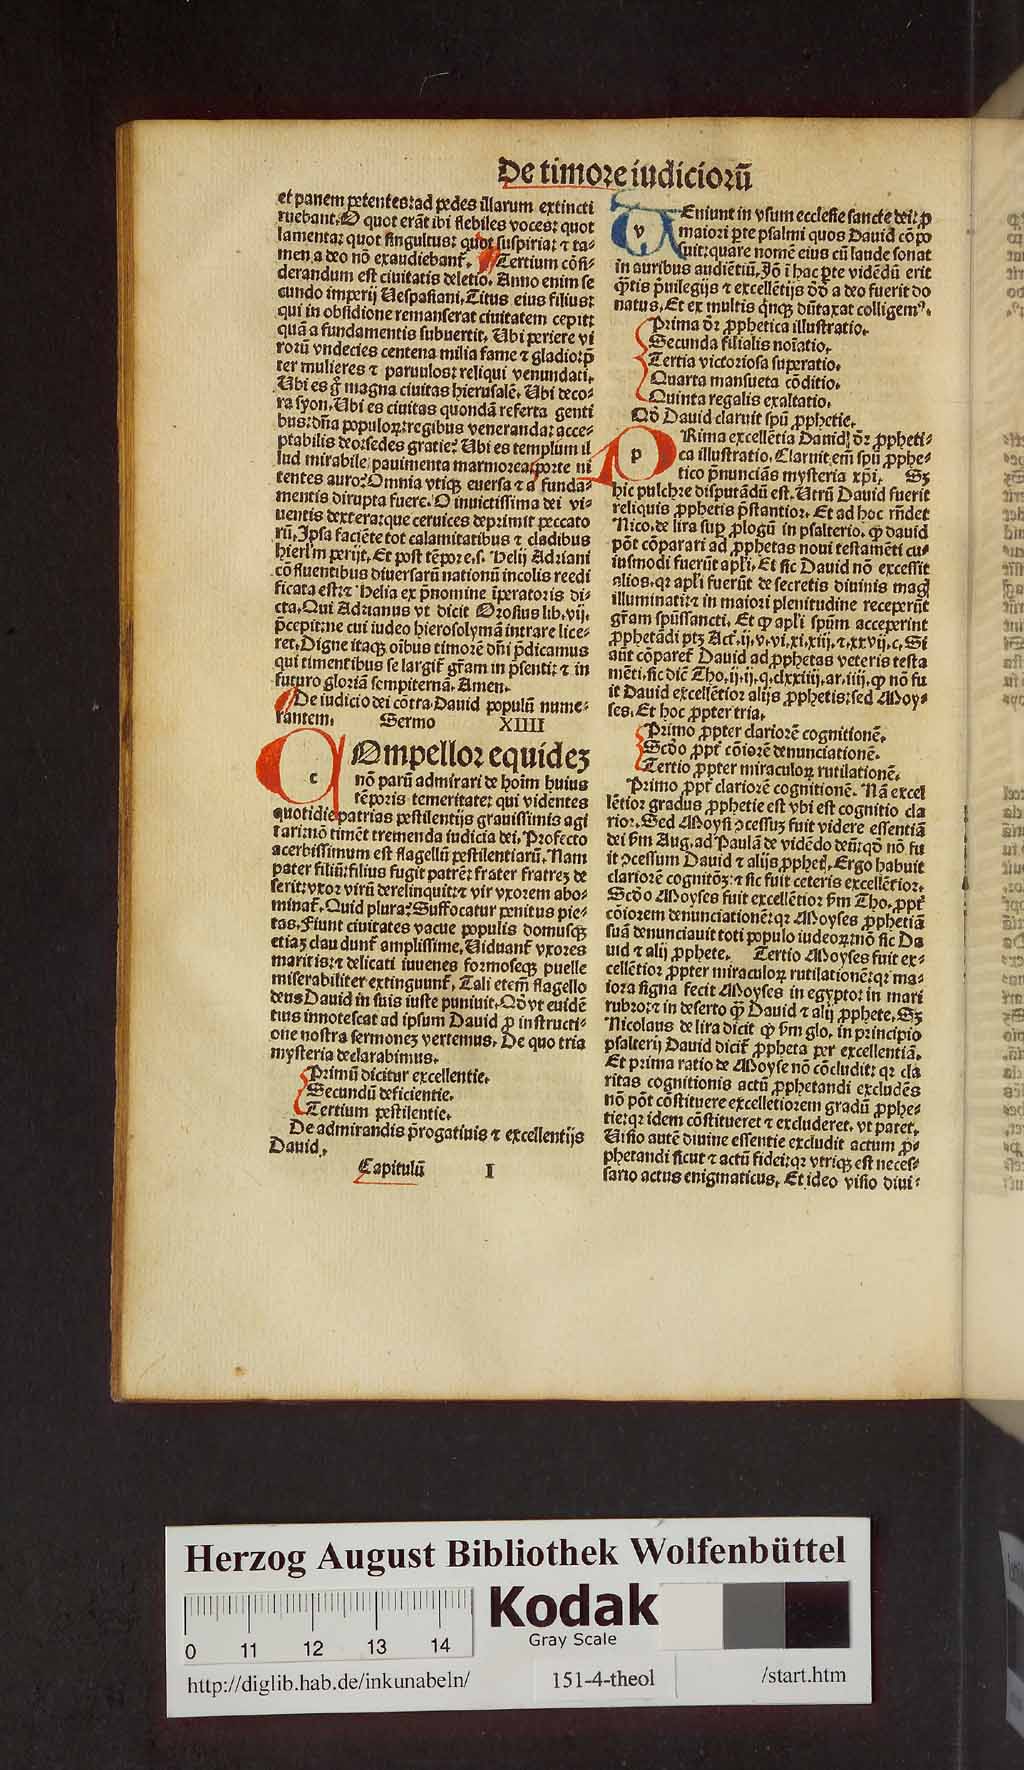 De timore iudiciorū
et panem petentes: ad pedes illarum extincti
ruebant. O quot erāt ibi flebiles voces: quot
lamenta: quot singultus: quot suspiria: ⁊ ta-
men a deo nō exaudiebant̄. Tertium cōsi-
derandum est ciuitatis deletio. Anno enim se
cundo imperij Uespasiani, Titus eius filius:
qui in obsidione remanserat ciuitatem cepit:
quā a fundamentis subuertit. Ubi periere vi
rorū vndecies centena milia fame ⁊ gladio: p̄
ter mulieres ⁊ paruulos: reliqui venundati.
Ubi es gͦ magna ciuitas hierusalē. Ubi deco-
ra syon. Ubi es ciuitas quondā referta genti
bus: dn̄a populoꝝ: regibus veneranda: acce-
ptabilis deo: sedes gratie? Ubi es templum il
lud mirabile / pauimenta marmorea: porte ni
tentes auro? Omnia vtiqꝫ euersa ⁊ a funda-
mentis dirupta fuere. O inuictissima dei vi-
uentis dextera: que ceruices deprimit peccato
rū. Ipsa faciēte tot calamitatibus ⁊ cladibus
hierl'm perijt. Et post tēpore .s. Helij Adriani
cōfluentibus diuersarū nationū incolis reedi
ficata est: ⁊ Helia ex p̄nomine īperatoris di-
cta. Qui Adrianus vt dicit Orosius lib. vij.
p̄cepit: ne cui iudeo hierosolymā intrare lice-
ret. Digne itaqꝫ oībus timorē dn̄i p̄dicamus
qui timentibus se largit̄ gr̄am in p̄senti: ⁊ in
futuro gloriā sempiternā. Amen.
De iudicio dei cōtra Dauid populū nume-
rantem. Sermo XIIII
c Ompellor equideꝫ
nō parū admirari de hoīm huius
tēporis temeritate: qui videntes
quotidie patrias pestilentijs grauissimis agi
tari: nō timēt tremenda iudicia dei. Profecto
acerbissimum est flagellū pestilentiarū. Nam
pater filiū: filius fugit patrē: frater fratreꝫ de
serit: vxor virū derelinquit: ⁊ vir vxorem abo-
minat̄. Quid plura? Suffocatur penitus pie-
tas. Fiunt ciuitates vacue populis domusqꝫ
etiaꝫ claudunt̄ amplissime. Uiduant̄ vxores
maritis: ⁊ delicati iuuenes formoseqꝫ puelle
miserabiliter extinguunt̄. Tali etem̄ flagello
deus Dauid in suis iuste puniuit. Qd̄ vt euidē
tius innotescat ad ipsum Dauid ꝓ instructi-
one nostra sermoneꝫ vertemus. De quo tria
mysteria declarabimus.
Primū dicitur excellentie.
Secundū deficientie.
Tertium pestilentie.
De admirandis p̄rogatiuis ⁊ excellentijs
Dauid.
Capitulū I
v Eniunt in vsum ecclesie sancte dei: ꝓ
maiori ꝑte psalmi quos Dauid cōpo
suit: quare nomē eius cū laude sonat
in auribus audiētiū. Jō ī hac ꝑte vidēdū erit
q̄tis p̄uilegijs ⁊ excellētijs dd̄ a deo fuerit do
natus. Et ex multis q̄nqꝫ dūtaxat colligemꝰ.
Prima dr̄ ꝓphetica illustratio.
Secunda filialis noīatio.
Tertia victoriosa superatio.
Quarta mansueta cōditio.
Quinta regalis exaltatio.
Qd̄ Dauid claruit spū ꝓphetie.
p Rima excellētia Dauid dr̄ ꝓpheti-
ca illustratio. Claruit em̄ spū ꝓphe-
tico p̄nunciās mysteria xp̄i. Sꝫ
hic pulchre disputādū est. Utrū Dauid fuerit
reliquis ꝓphetis p̄stantior. Et ad hoc rn̄det
Nico. de lira suꝑ ꝓlogū in psalterio. ꝙ dauid
pōt cōparari ad ꝓphetas noui testamēti cu-
iusmodi fuerūt apl'i. Et sic Dauid nō excessit
alios. qꝛ apl'i fuerūt de secretis diuinis mag
illuminati: ⁊ in maiori plenitudine receperūt
gr̄am spūssancti. Et ꝙ apl'i spūm acceperint
ꝓphetādi ptꝫ Act̄. ij. v. vi. xi. xiij. ⁊. xxvij. c. Si
aūt cōparet̄ Dauid ad ꝓphetas veteris testa
mēti, sic dic̄ Tho. ij. ij. q. clxxiiij. ar. iiij. ꝙ nō fu
it Dauid excellētior alijs ꝓphetis: sed Moy-
ses. Et hoc ꝓpter tria.
Primo ꝓpter clariorē cognitionē.
Scd̄o ꝓpt̄ cōiorē denunciationē.
Tertio ꝓpter miraculoꝝ rutilationē.
Primo ꝓpt̄ clariorē cognitionē. Nā excel
lētior gradus ꝓphetie est vbi est cognitio cla
rior. Sed Moysi ↄcessuꝫ fuit videre essentiā
dei s'm Aug. ad Paulā de vidēdo deū: qd̄ nō fu
it ↄcessum Dauid ⁊ alijs ꝓphet̄. Ergo habuit
clariorē cognitōꝫ: ⁊ sic fuit ceteris excellētior.
Scd̄o Moyses fuit excellētior s'm Tho. ꝓpt̄
cōiorem denunciationē: qꝛ Moyses ꝓphetiā
suā denunciauit toti populo iudeoꝝ: nō sic Da
uid ⁊ alij ꝓphete. Tertio Moyses fuit ex-
cellētior ꝓpter miraculoꝝ rutilationē: qꝛ ma-
iora signa fecit Moyses in egypto: in mari
rubro: ⁊ in deserto q̄ Dauid ⁊ alij ꝓphete. Sꝫ
Nicolaus de lira dicit ꝙ s'm glo. in principio
psalterij Dauid dicit̄ ꝓpheta per excellentiā.
Et prima ratio de Moyse nō cōcludit: qꝛ cla
ritas cognitionis actū ꝓphetandi excludēs
nō pōt cōstituere excelletiorem gradū ꝓphe-
tie: qꝛ idem cōstitueret ⁊ excluderet. vt patet.
Uisio autē diuine essentie excludit actum ꝓ-
phetandi sicut ⁊ actū fidei: qꝛ vtriqꝫ est neces-
sario actus enigmaticus. Et ideo visio diui-
Herzog August Bibliothek Wolfenbüttel
Kodak
Gray Scale
0 11 12 13 14
http://diglib.hab.de/inkunabeln/ 151-4-theol /start.htm